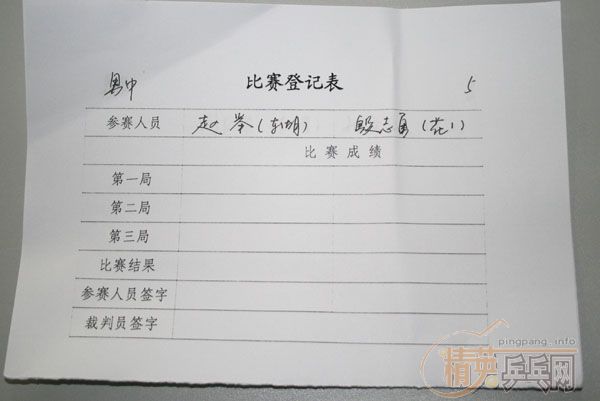 男中 比赛登记表 5
参赛人员 赵 举(东湖) 殷志勇(花1)
比赛成绩
第一局
第二局
第三局
比赛结果
参赛人员签字
裁判员签字
pingpang.info
精英乒乓网